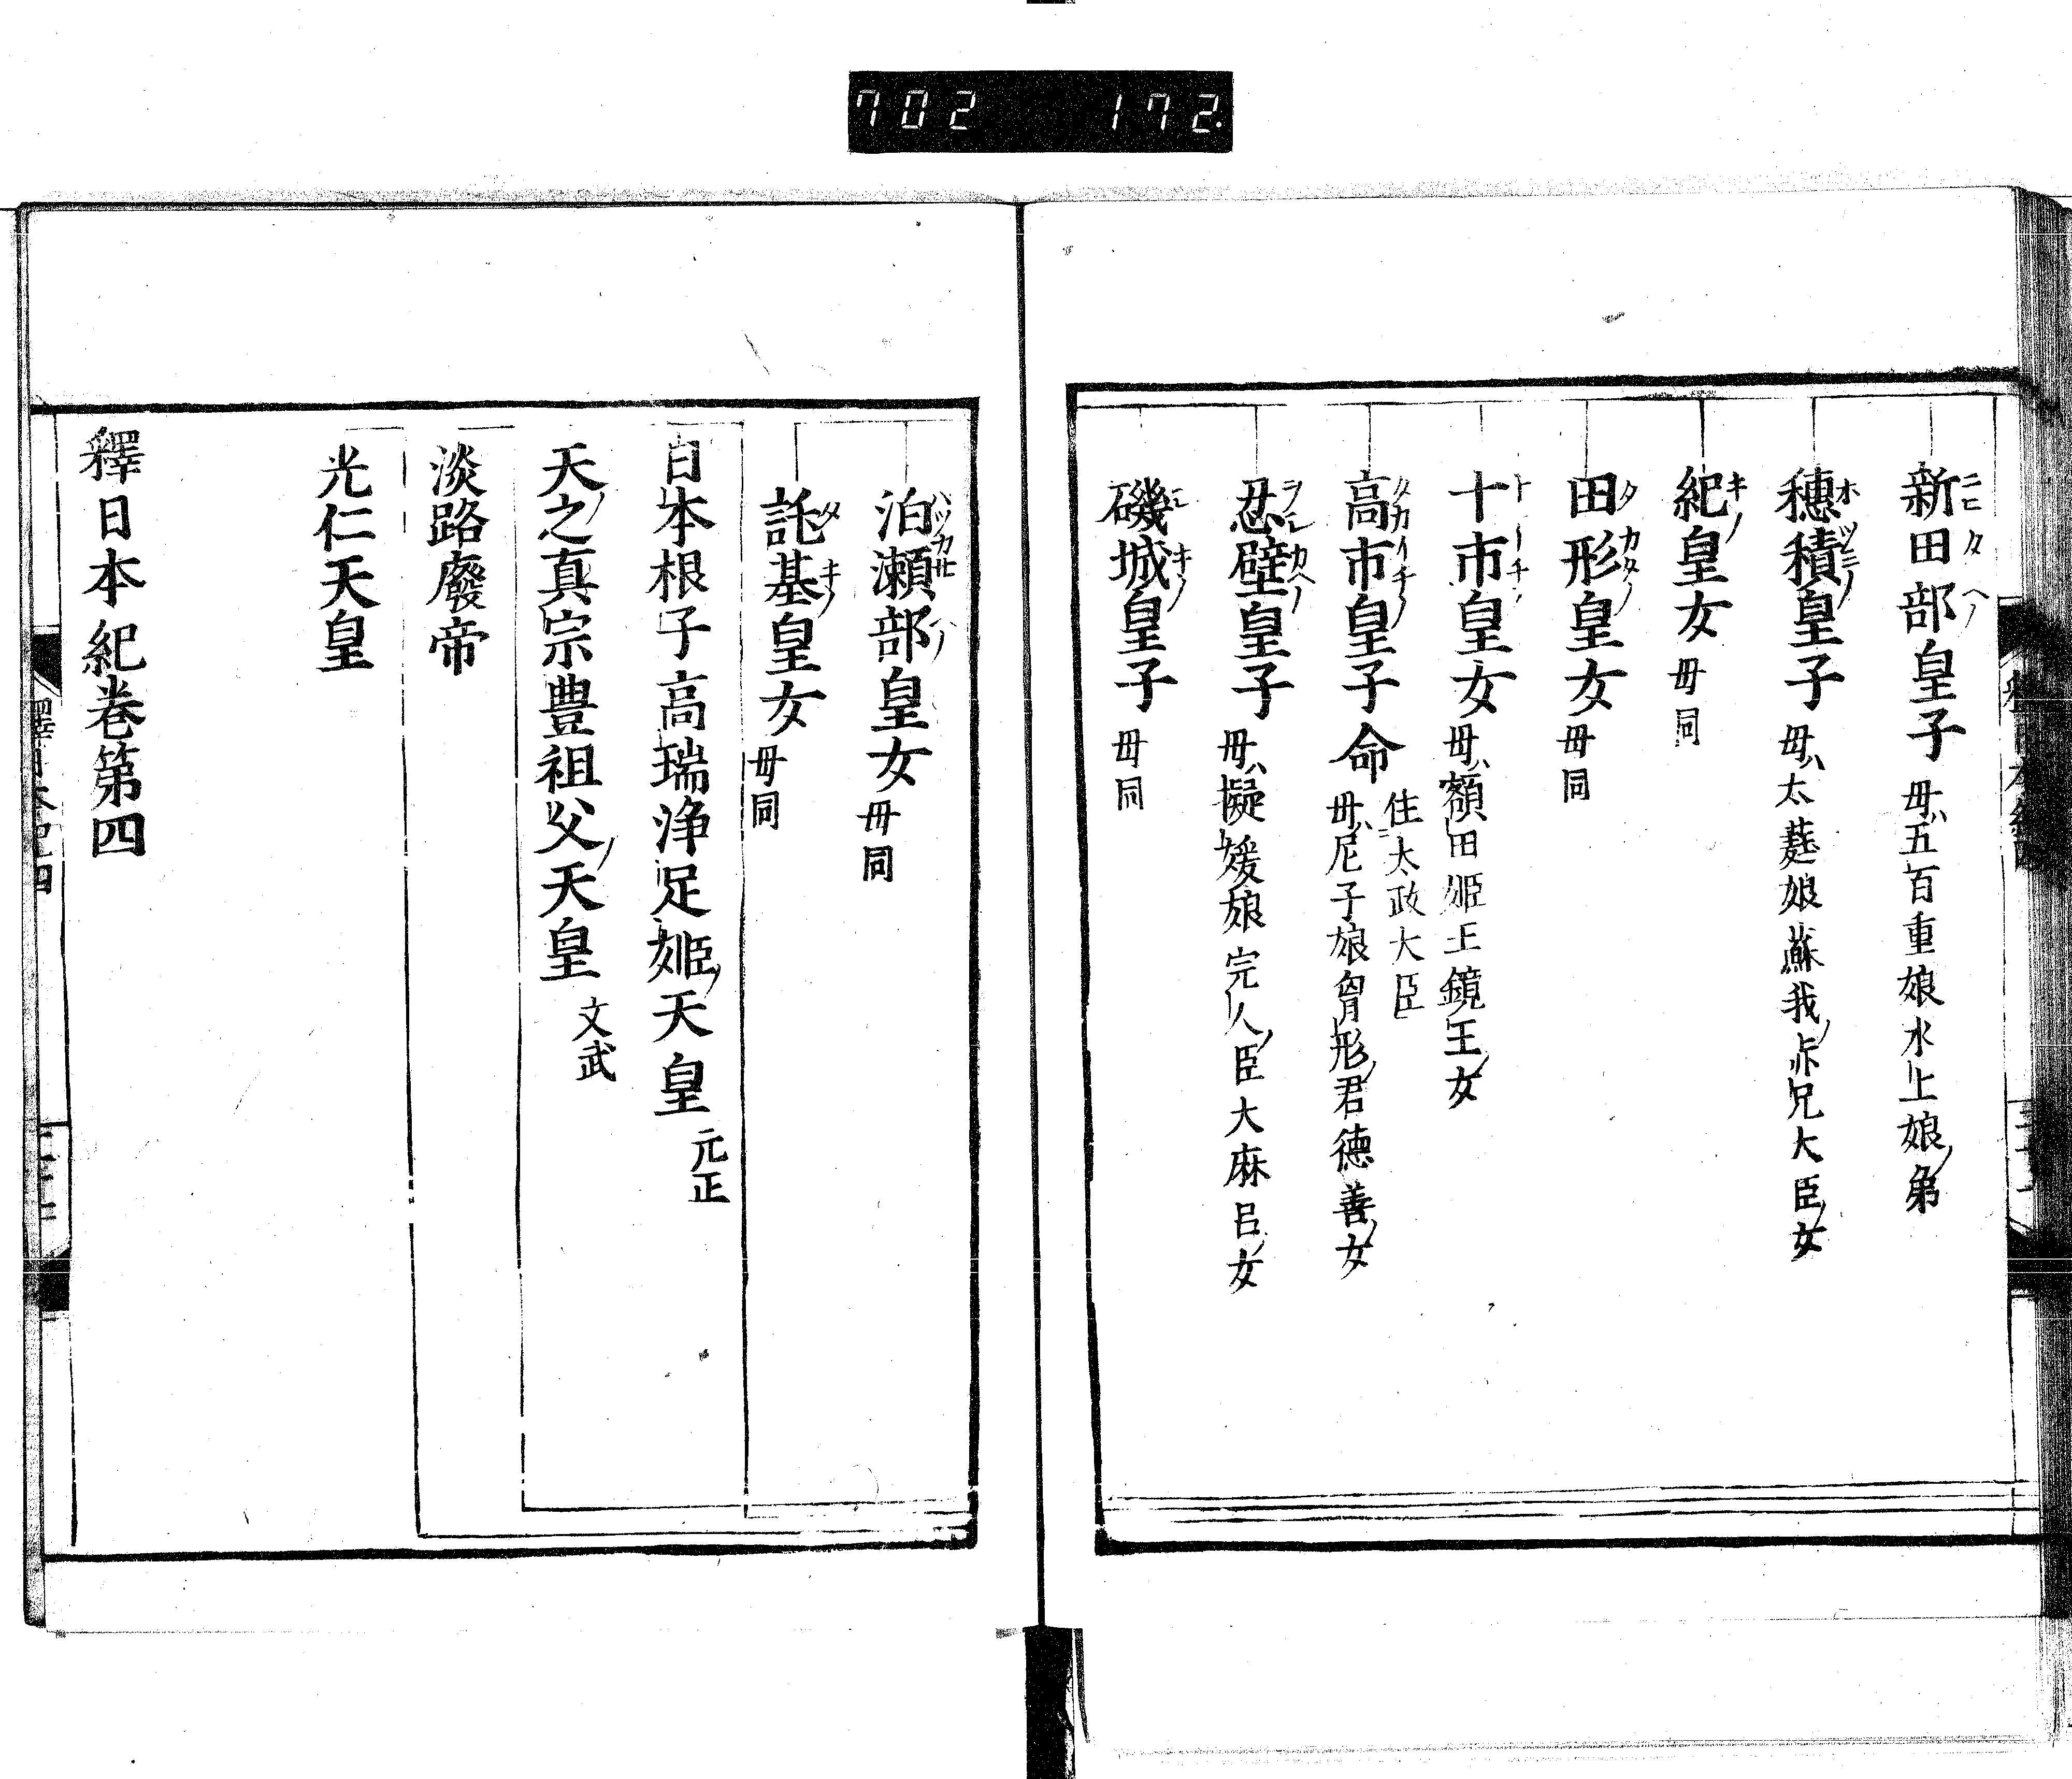 702 172.
新田部皇子 母ハ五百重娘水上娘ノ弟
穗積皇子 母ハ太蕤娘蘇我ノ赤兄大臣ノ女
紀皇女 母同
田形皇女 母同
十市皇女 母ハ額田姬王鏡王ノ女
高市皇子命 任太政大臣
母ハ尼子娘胷形ノ君德善ノ女
忍壁皇子 母ハ擬媛娘完人ノ臣大麻呂ノ女
磯城皇子 母同
泊瀬部皇女 母同
託基皇女 母同
日本根子高瑞浄足姬ノ天皇 元正
天之真宗豊祖父ノ天皇 文武
淡路廢帝
光仁天皇
釋日本紀卷第四